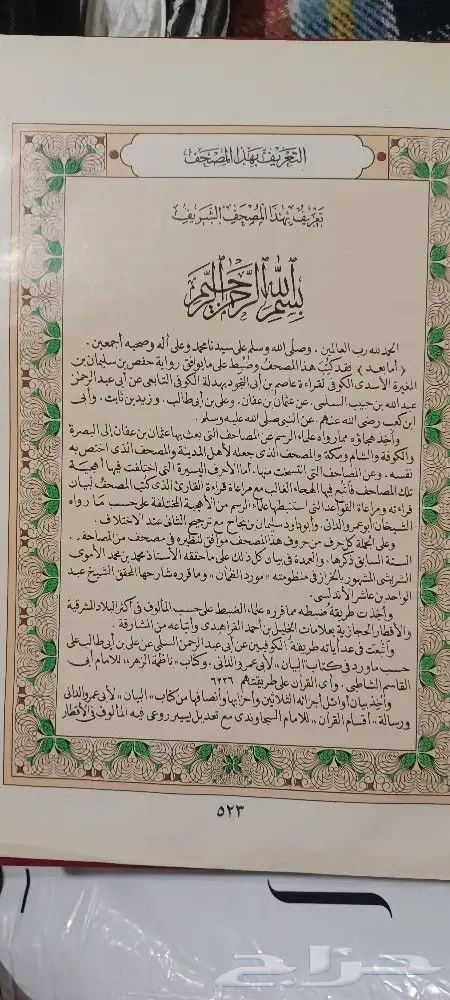 التعريف بهذا المصحف
تعريف بهذا المصحف الشريف
بسم الله الرحمن الرحيم
الحمد لله رب العالمين . وصلى الله وسلم على سيدنا محمد وعلى آله وصحبه أجمعين .
﴿ أما بعد ﴾ فقد كتب هذا المصحف وضبط على ما يوافق رواية حفص بن سليمان بن
المغيرة الأسدي الكوفي لقراءة عاصم بن أبي النجود بهدلة الكوفي التابعي عن أبي عبد الرحمن
عبد الله بن حبيب السلمي . عن عثمان بن عفان . وعلي بن أبي طالب . وزيد بن ثابت . وأبي
ابن كعب رضي الله عنهم عن النبي صلى الله عليه وسلم .
وأخذ هجاؤه مما رواه علماء الرسم عن المصاحف التي بعث بها عثمان بن عفان إلى البصرة
والكوفة والشام ومكة والمصحف الذي جعله لأهل المدينة والمصحف الذي اختص به
نفسه . وعن المصاحف التي انتسخت منها . أما الأحرف اليسيرة التي اختلفت فيها أهجية
تلك المصاحف فاتبع فيها الهجاء الغالب مع مراعاة قراءة القارئ الذي كتب المصحف لبيان
قراءته ومراعاة القواعد التي استنبطها علماء الرسم من الأهجية المختلفة على حسب ما رواه
الشيخان أبو عمرو الداني . وأبو داود سليمان بن نجاح مع ترجيح الثاني عند الاختلاف .
وعلى الجملة كل حرف من حروف هذا المصحف موافق لنظيره في مصحف من المصاحف
الستة السابق ذكرها . والعمدة في بيان كل ذلك على ما حققه الأستاذ محمد بن محمد الأموي
الشريشي المشهور بالخراز في منظومته « مورد الظمآن » وما قرره شارحها المحقق الشيخ عبد
الواحد بن عاشر الأندلسي .
وأخذت طريقة ضبطه مما قرره علماء الضبط على حسب المألوف في أكثر البلاد المشرقية
والأقطار الحجازية بعلامات الخليل بن أحمد الفراهيدي وأتباعه من المشارقة .
واتبعت في عد آياته طريقة الكوفيين عن أبي عبد الرحمن السلمي عن علي بن أبي طالب على
حسب ما ورد في كتاب البيان » لأبي عمرو الداني . وكتاب « ناظمة الزهر » للإمام أبي
القاسم الشاطبي . وآي القرآن على طريقتهم ٦٢٣٦
وأخذ بيان أوائل أجزائه الثلاثين وأحزابها وأنصافها من كتاب « البيان » لأبي عمرو الداني
ورسالة « أقسام القرآن » للإمام السجاوندي مع تعديل يسير روعي فيه المألوف في الأقطار
٥٢٣
حراج